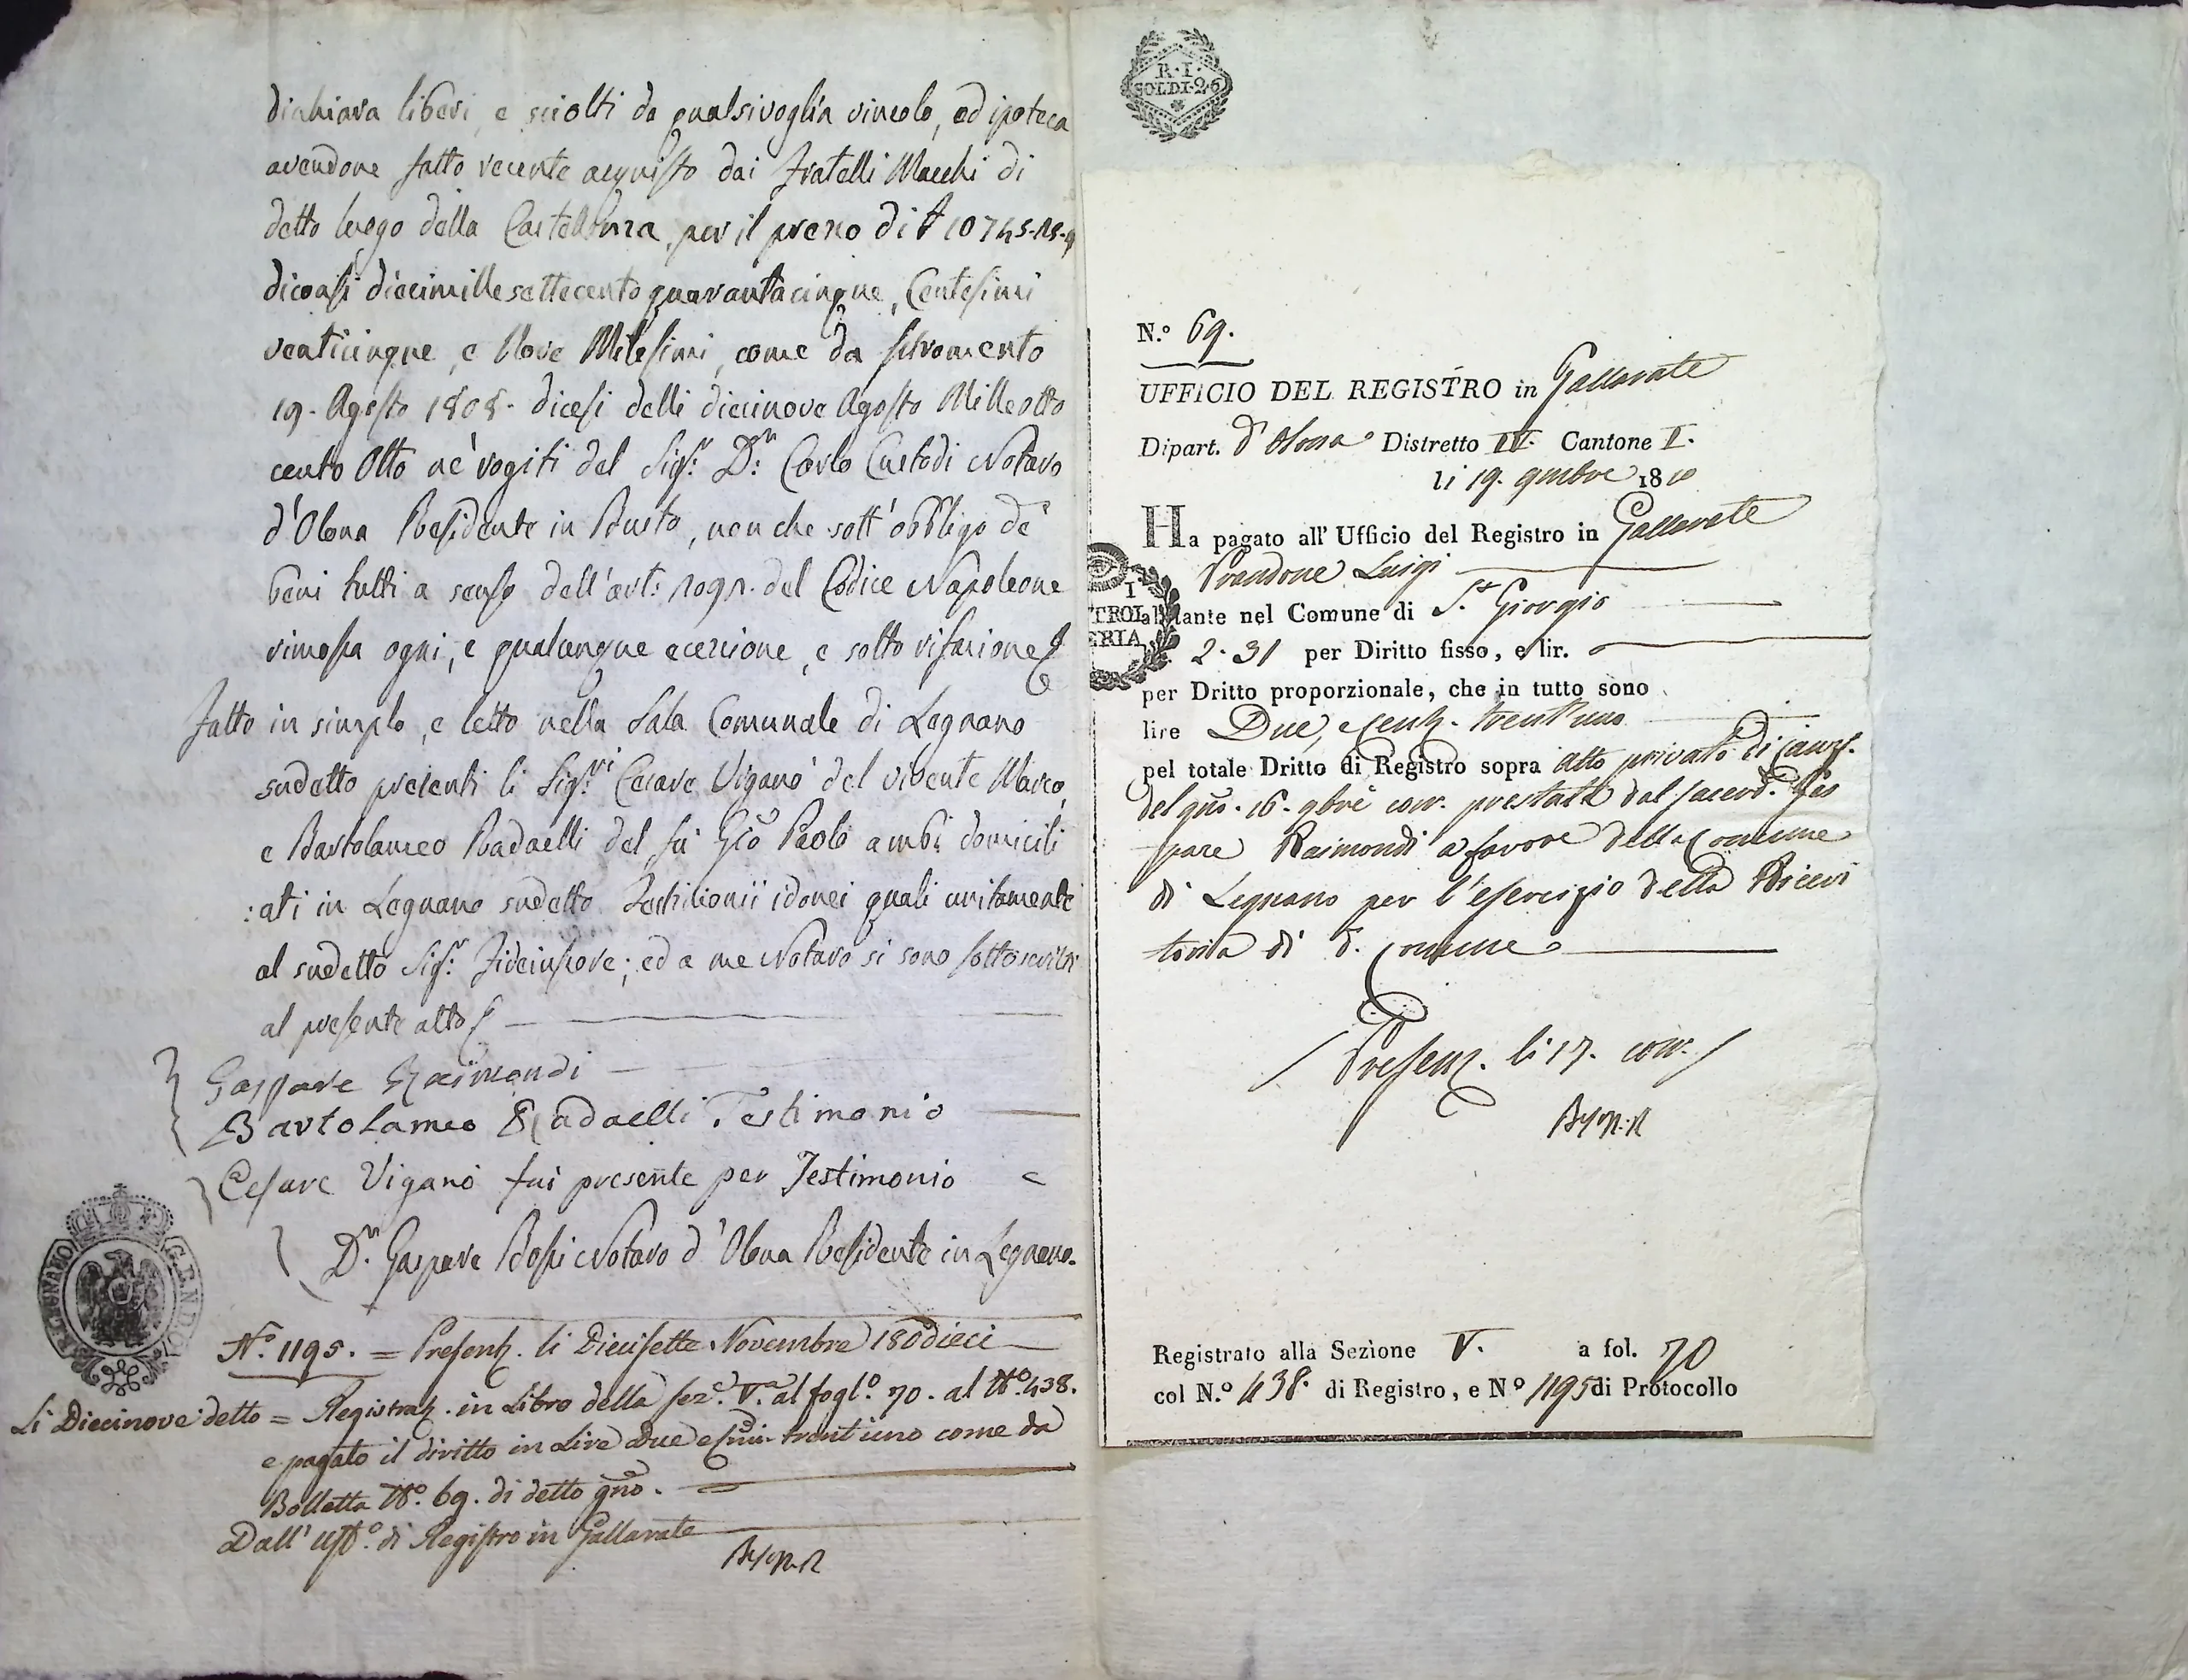 dichiara liberi, e sciolti da qualsivoglia vincolo, ed ipoteca
avendone fatto recente acquisto dai Fratelli Macchi di
detto luogo della Castellanza, per il prezzo di £ 10745.25.9
diconsi diecimillesettecento quarantacinque, Centesimi
venticinque, e Nove Milesimi, come da Istromento
19. Agosto 1808. dicesi delli diecinove Agosto Milleotto
cento Otto ne' rogiti del Sig.r D.n Carlo Custodi Notaro
d'Olona Residente in Busto, non che sott'obbligo de'
beni tutti a senso dell'art: 2092. del Codice Napoleone
rimossa ogni, e qualunque eccezione, e sotto rifazione
Fatto in simplo, e letto nella Sala Comunale di Legnano
sudetto presenti li Sig.ri Cesare Viganò del vivente Marco,
e Bartolameo Radaelli del fù Giò Paolo ambi domicili
:ati in Legnano sudetto Testimonii idonei quali unitamente
al sudetto Sig.r Fideiussore; ed a me Notaro si sono sottoscritti
al presente atto
Gaspare Raimondi
Bartolameo Radaelli Testimonio
Cesare Viganò fui presente per Testimonio
D.n Gaspare Bossi Notaro d'Olona Residente in Legnano.
N.o 1195. = Present. li Diecisette Novembre 180dieci
Li Diecinove detto = Registrat. in Libro della Sez.e V.a al fogl.o 70. al N.o 438.
e pagato il diritto in Lire Due e Cmi trent'uno come da
Bolletta N.o 69. di detto gno.
Dall' Uff.o di Registro in Gallarate
R. I.
SOLDI 26
N.o 69.
UFFICIO DEL REGISTRO in Gallarate
Dipart. d'Olona Distretto IV. Cantone I.
li 19. 9mbre 1810
Ha pagato all' Ufficio del Registro in Gallarate
Prandone Luigi
abitante nel Comune di S.t Giorgio
2. 31 per Diritto fisso, e lir.
per Dritto proporzionale, che in tutto sono
lire Due, e cent. trent'uno
pel totale Dritto di Registro sopra atto privato di cauz.
del gno. 16. 9bre corr. prestata dal Sacerd. Gas
pare Raimondi a favore della Comune
di Legnano per l'esercizio della Ricevi
toria di d. Comune
/ Present. li 17. corr. /
Registrato alla Sezione V. a fol. 70
col N.o 438. di Registro, e N.o 1195 di Protocollo